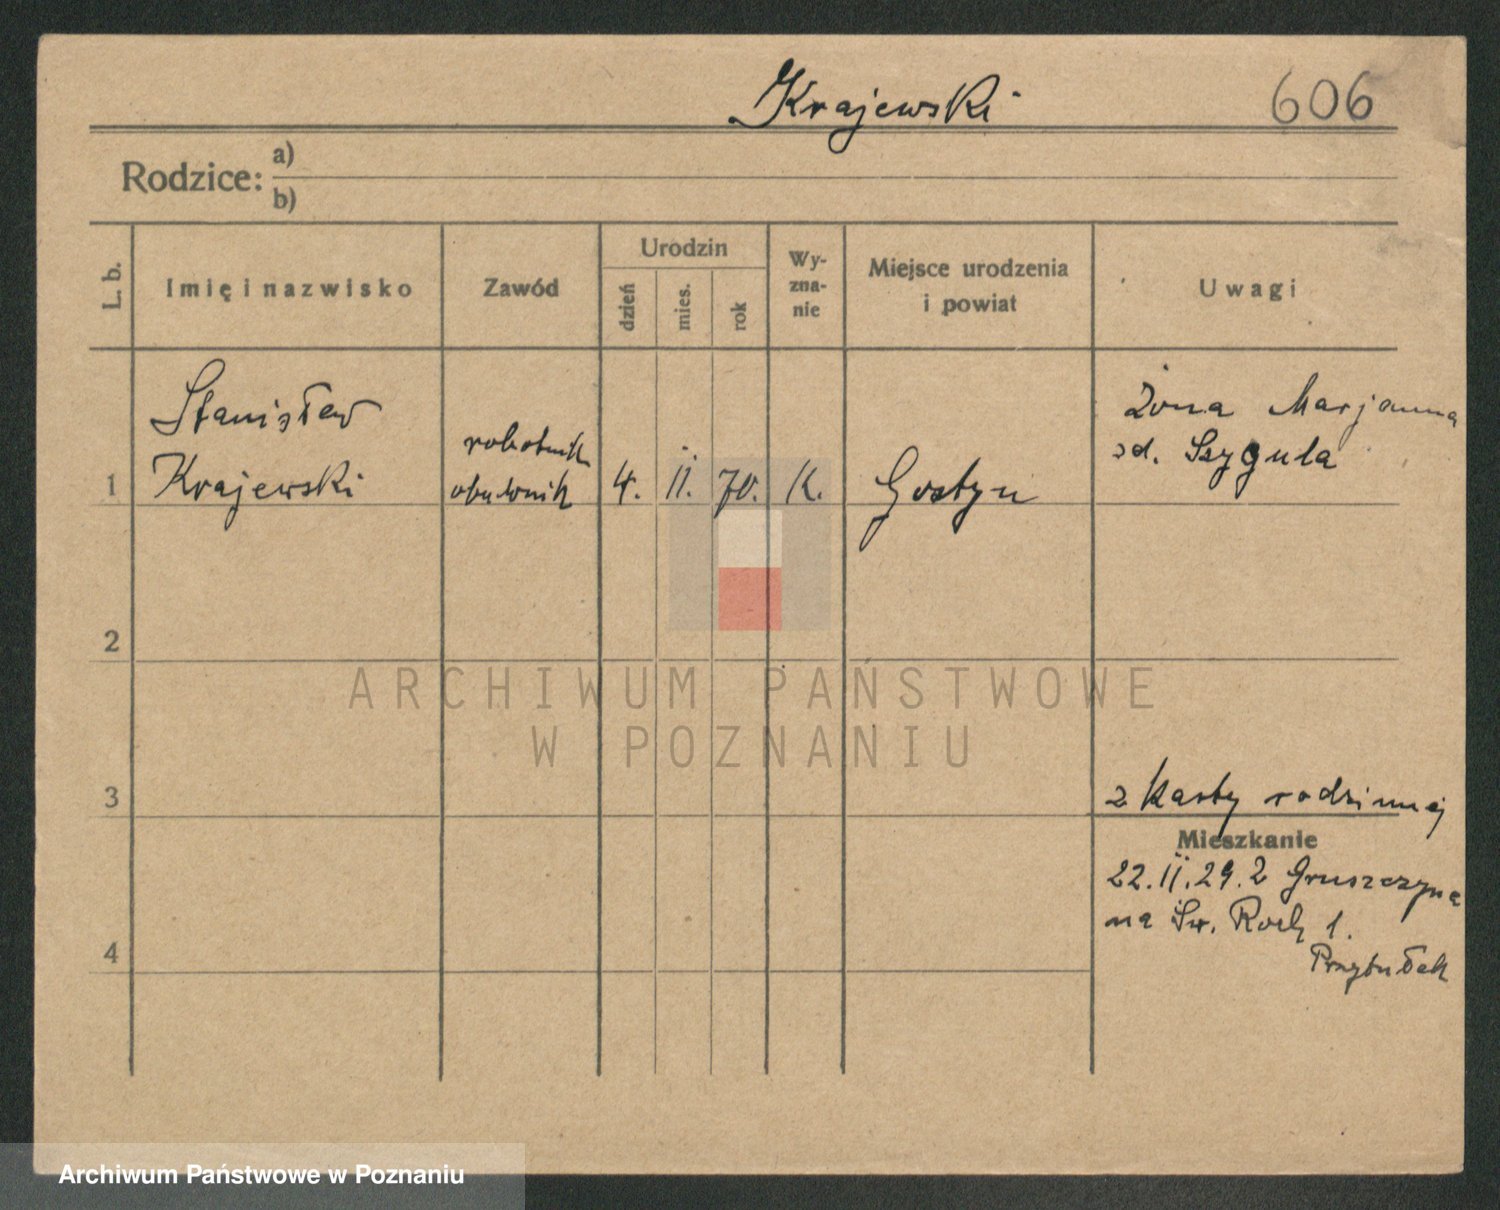 Krajewski 606
Rodzice: a)
b)
L. b.
Imię i nazwisko
Zawód
Urodzin
dzień
mies.
rok
Wy-
zna-
nie
Miejsce urodzenia
i powiat
Uwagi
Stanisław
Krajewski
robotnik
obuwnik
1
4. II. 70. K. Gostyn
Żona Marjanna
zd. Szygula
2
ARCHIWUM PAŃSTWOWE
W POZNANIU
3
z Karty rodzinnej
Mieszkanie
22.II.29. z Gruszczyna
na Św. Roch 1.
Przybułek
4
Archiwum Państwowe w Poznaniu